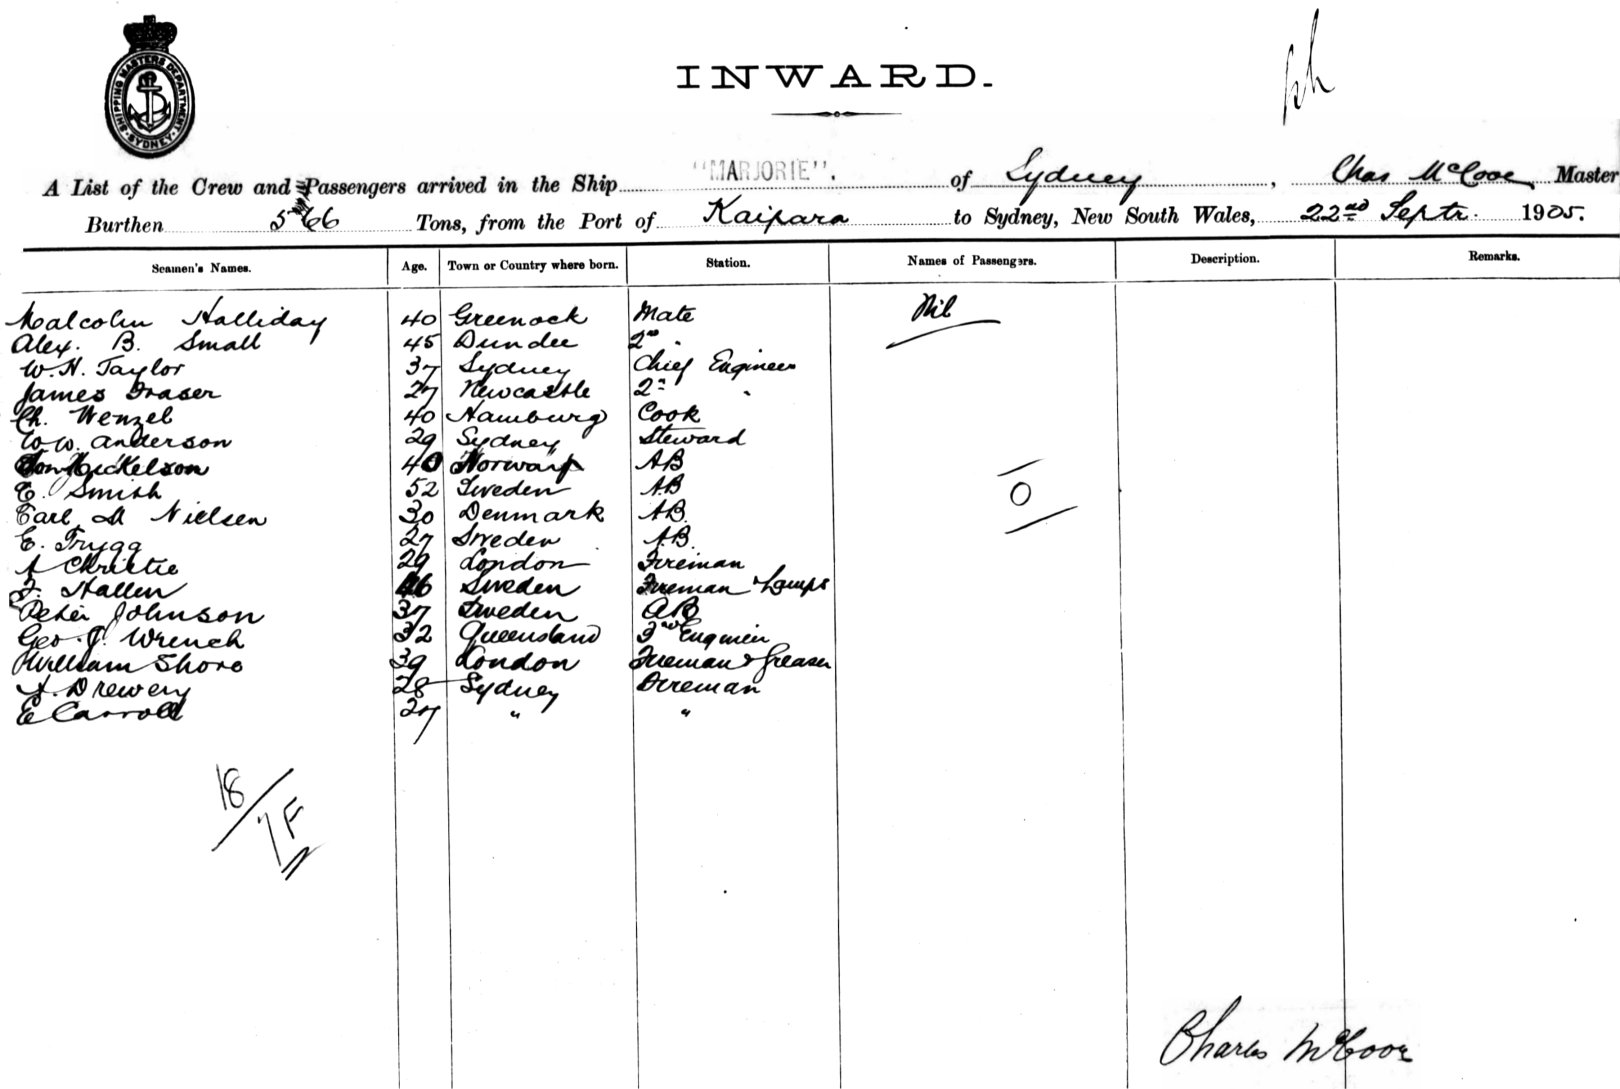 SHIPPING MASTERS DEPARTMENT SYDNEY
INWARD.
A List of the Crew and Passengers arrived in the Ship "MARJORIE". of Sydney, Chas McCooe Master
Burthen 566 Tons, from the Port of Kaipara to Sydney, New South Wales, 22nd Septr. 1905.
Seamen's Names. Age. Town or Country where born. Station. Names of Passengers. Description. Remarks.
Malcolm Halliday 40 Greenock Mate Nil
Alex. B. Small 45 Dundee 2nd "
W. H. Taylor 37 Sydney Chief Engineer
James Fraser 27 Newcastle 2nd "
Ch. Wenzel 40 Hamburg Cook
W. W. Anderson 29 Sydney Steward
Mickelson 40 Norway AB
E. Smith 52 Sweden AB
Carl M Nielsen 30 Denmark AB
E. Trygg 27 Sweden AB
A Christie 29 London Fireman
F. Hallen 46 Sweden Fireman & Lamps
Peter Johnson 37 Sweden AB
Geo. J. Wrench 32 Queensland 3rd Engineer
William Shore 39 London Fireman & Greaser
A. Drewery 28 Sydney Fireman
E Carroll 27 " "
O
18/7F
Charles McCooe